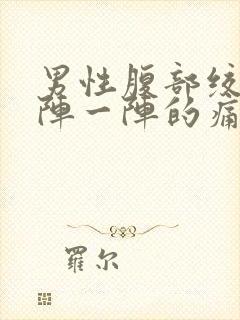 男性腹部绞
阵一阵的痛
羅尔